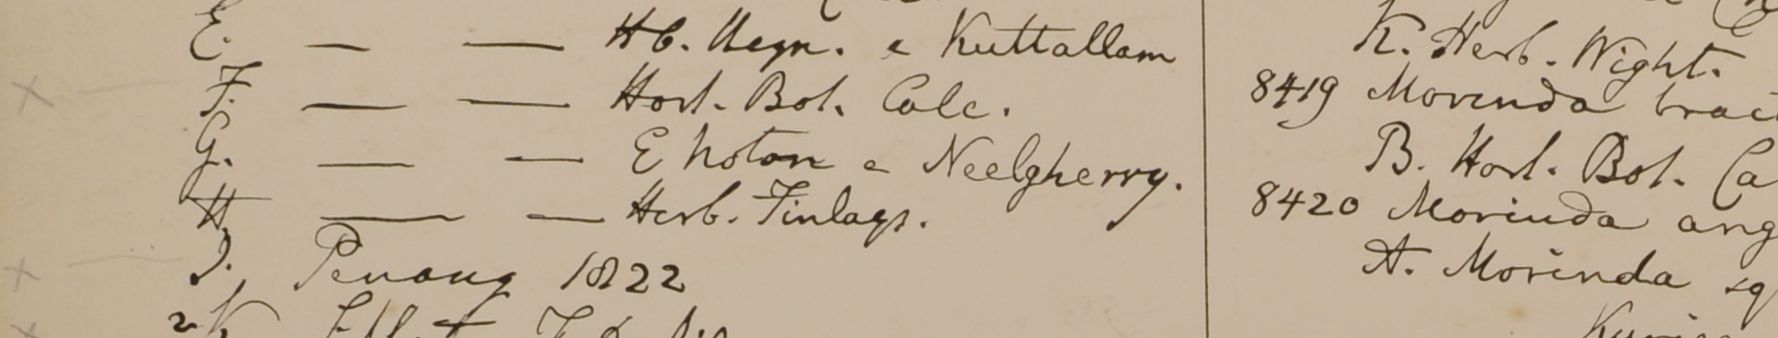 E. — — Hb. Heyn. e Kuttallam
F. — — Hort. Bot. Calc.
G. — — E Noton e Neelgherry.
H — — Herb. Finlays.
I. Penang 1822
K
K. Herb. Wight.
8419 Morinda bract
B. Hort. Bot. Ca
8420 Morinda ang
A. Morinda sq